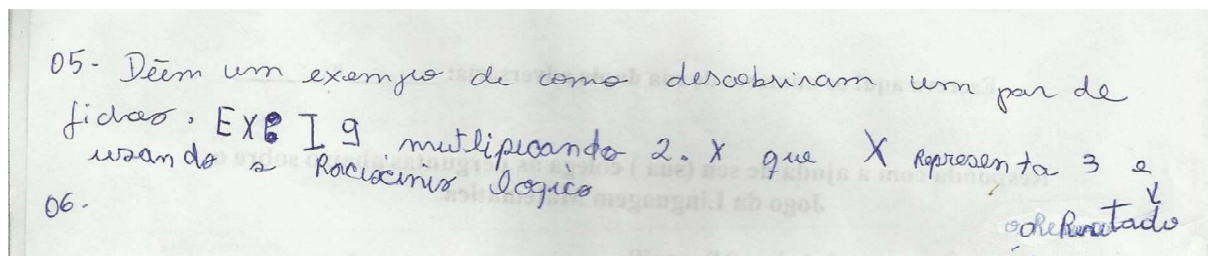 05- Dêem um exemplo de como descobriram um par de
fichas. EXE I 9 mutlipicando 2. X que X Representa 3 e
usando o Raciocinio logico
06.